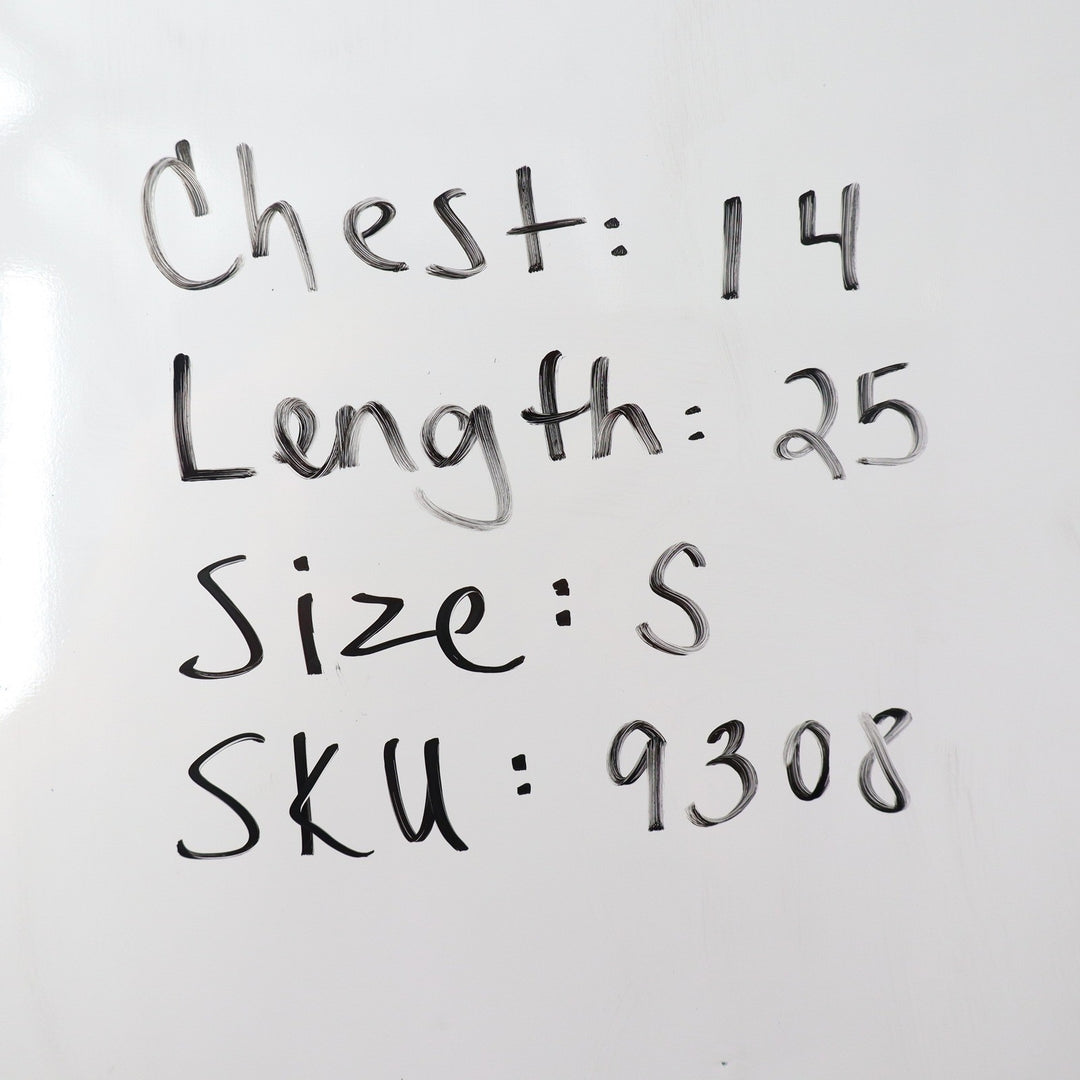 Chest: 14
Length: 25
Size: S
SKU: 9308